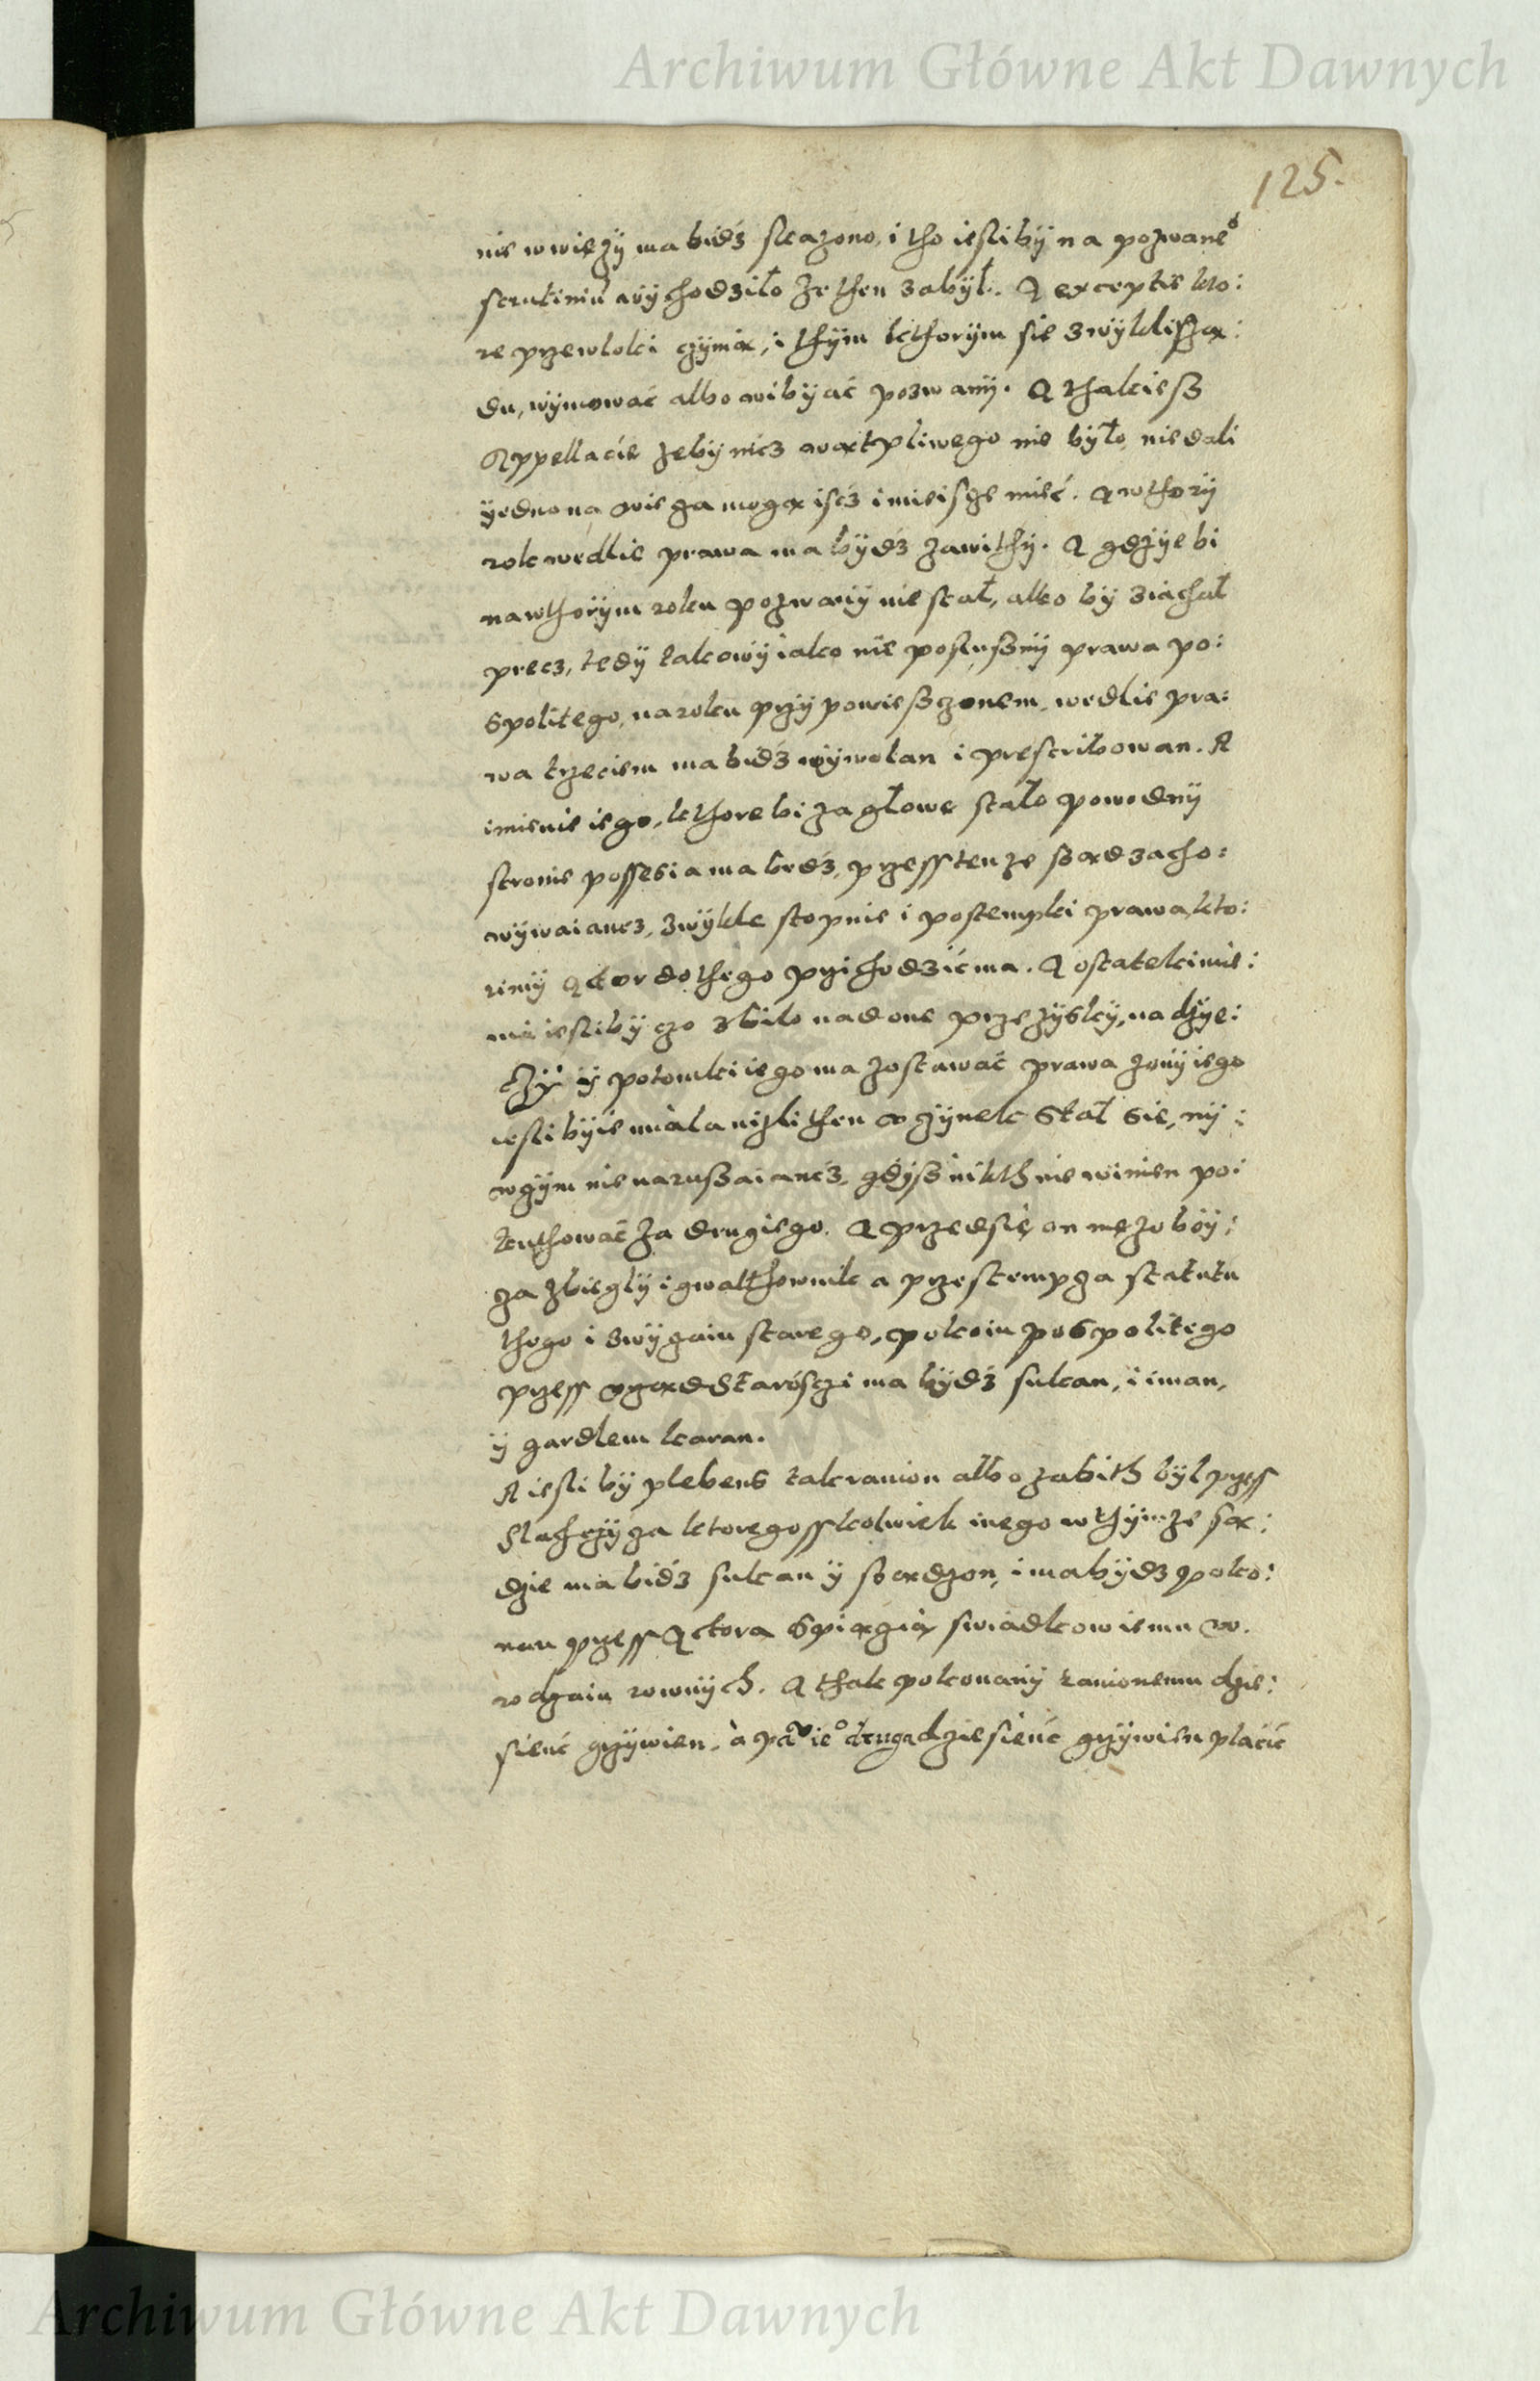 Archiwum Główne Akt Dawnych
125.
nie w wiezÿ ma bidź skazono, i tho iesli bÿ na pozwane°
scrutiniũ wÿchodziło że then zabÿł. A exceptie kto:
re przewloki czÿnią, i thÿm kthorÿm sie zwÿkli sżą:
du, wÿmować albo wibÿać pozwanÿ. A thakiesz
Appellacie żebÿ nicz wątpliwego nie bÿło, nie dali
ÿedno na wieża mogą iscź i mieisze mieć. A wthorÿ
rok wedlie prawa ma bÿdź zawithÿ. A gdzÿe bi
na wthorÿm roku pozwanÿ nie stał, albo bÿ ziachał
precz, tedÿ takowÿ iako nie poslusznÿ prawa po:
spolitego, na roku przÿpowieszczonem, wedlie pra:
wa trzeciem ma bidź wÿwolan i prescribowan. A
imienie iego, kthore bi za głowe stało powodnÿ
stronie possesia ma bidź, przess tenże sąd zacho:
wÿwaiancz, zwÿkle stopnie i postempki prawa, kto:
rimÿ Actor do thego przichodzić ma. A ostatek imie:
nia iesli bÿ czo zbilo nad one przezÿskÿ, na dzÿe:
czÿ ÿ potomki iego ma zostawać prawa zonÿ iego
iesli bÿ ie miala nizli then uczÿnek stał sie, nÿ:
wczÿm nie naruszaiancz, gdÿsz nikth nie winien po:
kuthować za drugiego. A przedsię on mezoboÿ:
za zbieglÿ i gwalthownik a przestempza statutu
thego i zwÿczaiu starego, pokoiu pospolitego
przess urząd Starósczi ma bÿdź sukan, i iman,
ÿ gardlem karan.
A iesli bÿ plebeus tak ranion albo zabith bÿl przess
Slachczÿza ktoregosskolwiek inego w thÿmże są:
dzie ma bidź sukan ÿ sądzon, i ma bÿdź poko:
nan przess Actora spiącią swiadkow iemu w
rodzaiu rownÿch. A thak pokonanÿ ranionemu dzie:
sienć grzÿwien, à pãu ie° druga dziesienć grzÿwien płacić
Archiwum Główne Akt Dawnych